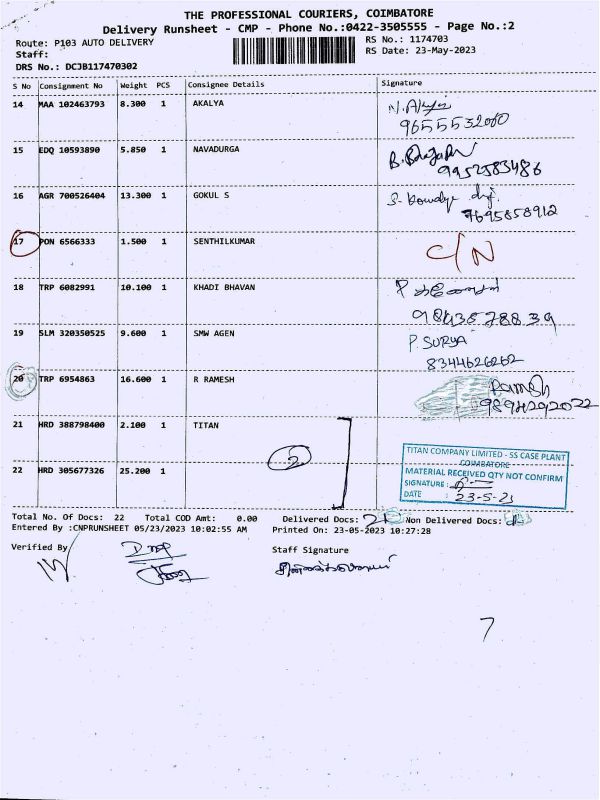 THE PROFESSIONAL COURIERS, COIMBATORE
Delivery Runsheet - CMP - Phone No.:0422-3505555 - Page No.:2
Route: P103 AUTO DELIVERY RS No.: 1174703
Staff: RS Date: 23-May-2023
DRS No.: DCJB117470302
S No Consignment No Weight PCS Consignee Details Signature
14 MAA 102463793 8.300 1 AKALYA
9655532000
15 EDQ 10593890 5.850 1 NAVADURGA
9952583486
16 AGR 700526404 13.300 1 GOKUL S
7695858912
17 PON 6566333 1.500 1 SENTHILKUMAR C/N
18 TRP 6082991 10.100 1 KHADI BHAVAN
19 SLM 320350525 9.600 1 SMW AGEN P. SURYA
8344626262
20 TRP 6954863 16.600 1 R RAMESH Ramesh
9894292022
21 HRD 388798400 2.100 1 TITAN
2
22 HRD 305677326 25.200 1
TITAN COMPANY LIMITED - SS CASE PLANT
COIMBATORE
MATERIAL RECEIVED QTY NOT CONFIRM
SIGNATURE :
DATE : 23-5-23
Total No. Of Docs: 22 Total COD Amt: 0.00 Delivered Docs: 21 Non Delivered Docs:
Entered By :CNPRUNSHEET 05/23/2023 10:02:55 AM Printed On: 23-05-2023 10:27:28
Verified By Staff Signature
7